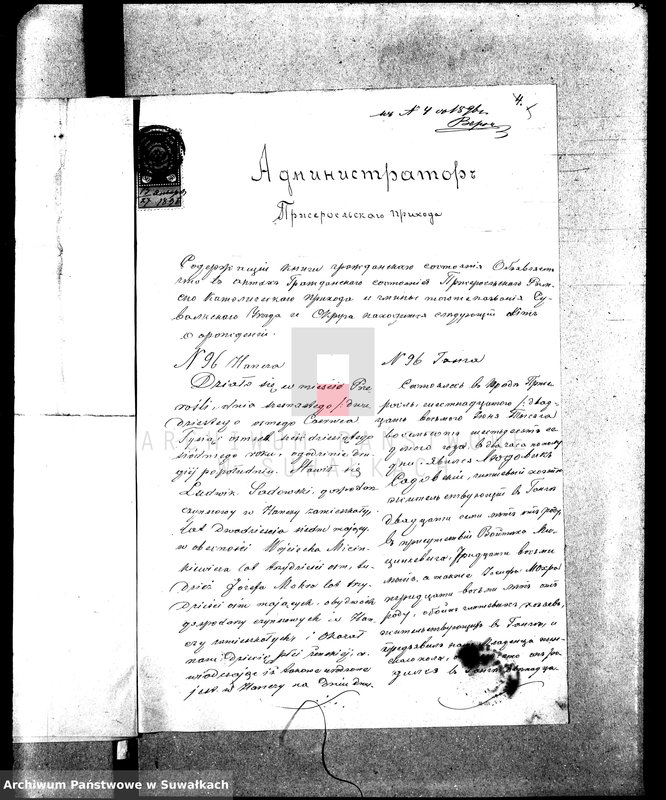 4.
къ N 4 до 1896
Администраторъ
Пржеросльскаго прихода
Содержащій книги гражданскаго состоянія Объявляетъ
что въ актахъ Гражданскаго состоянія Пржеросльскаго Рим
ско Католическаго прихода и гмины тогоже названія Су-
валкскаго Уезда и Округа находится следующій Актъ
о рожденіи.
N 96 Hancza
Działo się w mieście Prze
rośli, dnia szesnastego /dwu
dziestego ósmego Czerwca
Tysiąc ośmset sześćdziesiątego
roku, o godzinie dru
giej po południu. Stawił się
Ludwik Sadowski, gospodarz
czynszowy w Hanczy zamieszkały,
lat dwadzieścia siedm mający,
w obecności Wojciecha Micin-
kiewicza lat trzydzieści ośm, tu-
dzież Józefa Mokra lat trzy-
dzieści ośm mających, obydwóch
gospodarzy czynszowych w Han
czy zamieszkałych i okazał
nam dziecię płci żeńskiej, o-
świadczając iż takowe urodzone
jest w Hanczy na dniu dwu
N 96 Ганча
Состоялось въ городе Прже
росль, шестнадцатаго /двад-
цать восьмаго Іюня Тысяча
восемьсотъ шестьдесятъ
года, въ два часа по полу
дни: явился Людовикъ
Садовскій, чиншевый хозяинъ
жительствующій въ Ганче
двадцати семи летъ отъ роду,
въ присутствіи Войтеха Ми-
цинкевича, Тридцати восьми
летъ, а также Іосифа Мокра
тридцати восьми летъ отъ
роду, обоихъ чиншевыхъ хозяевъ,
жительствующихъ въ Ганче, и
предъявилъ намъ младенца жен-
скаго пола, оно ро
дился въ Ганче
Archiwum Państwowe w Suwałkach